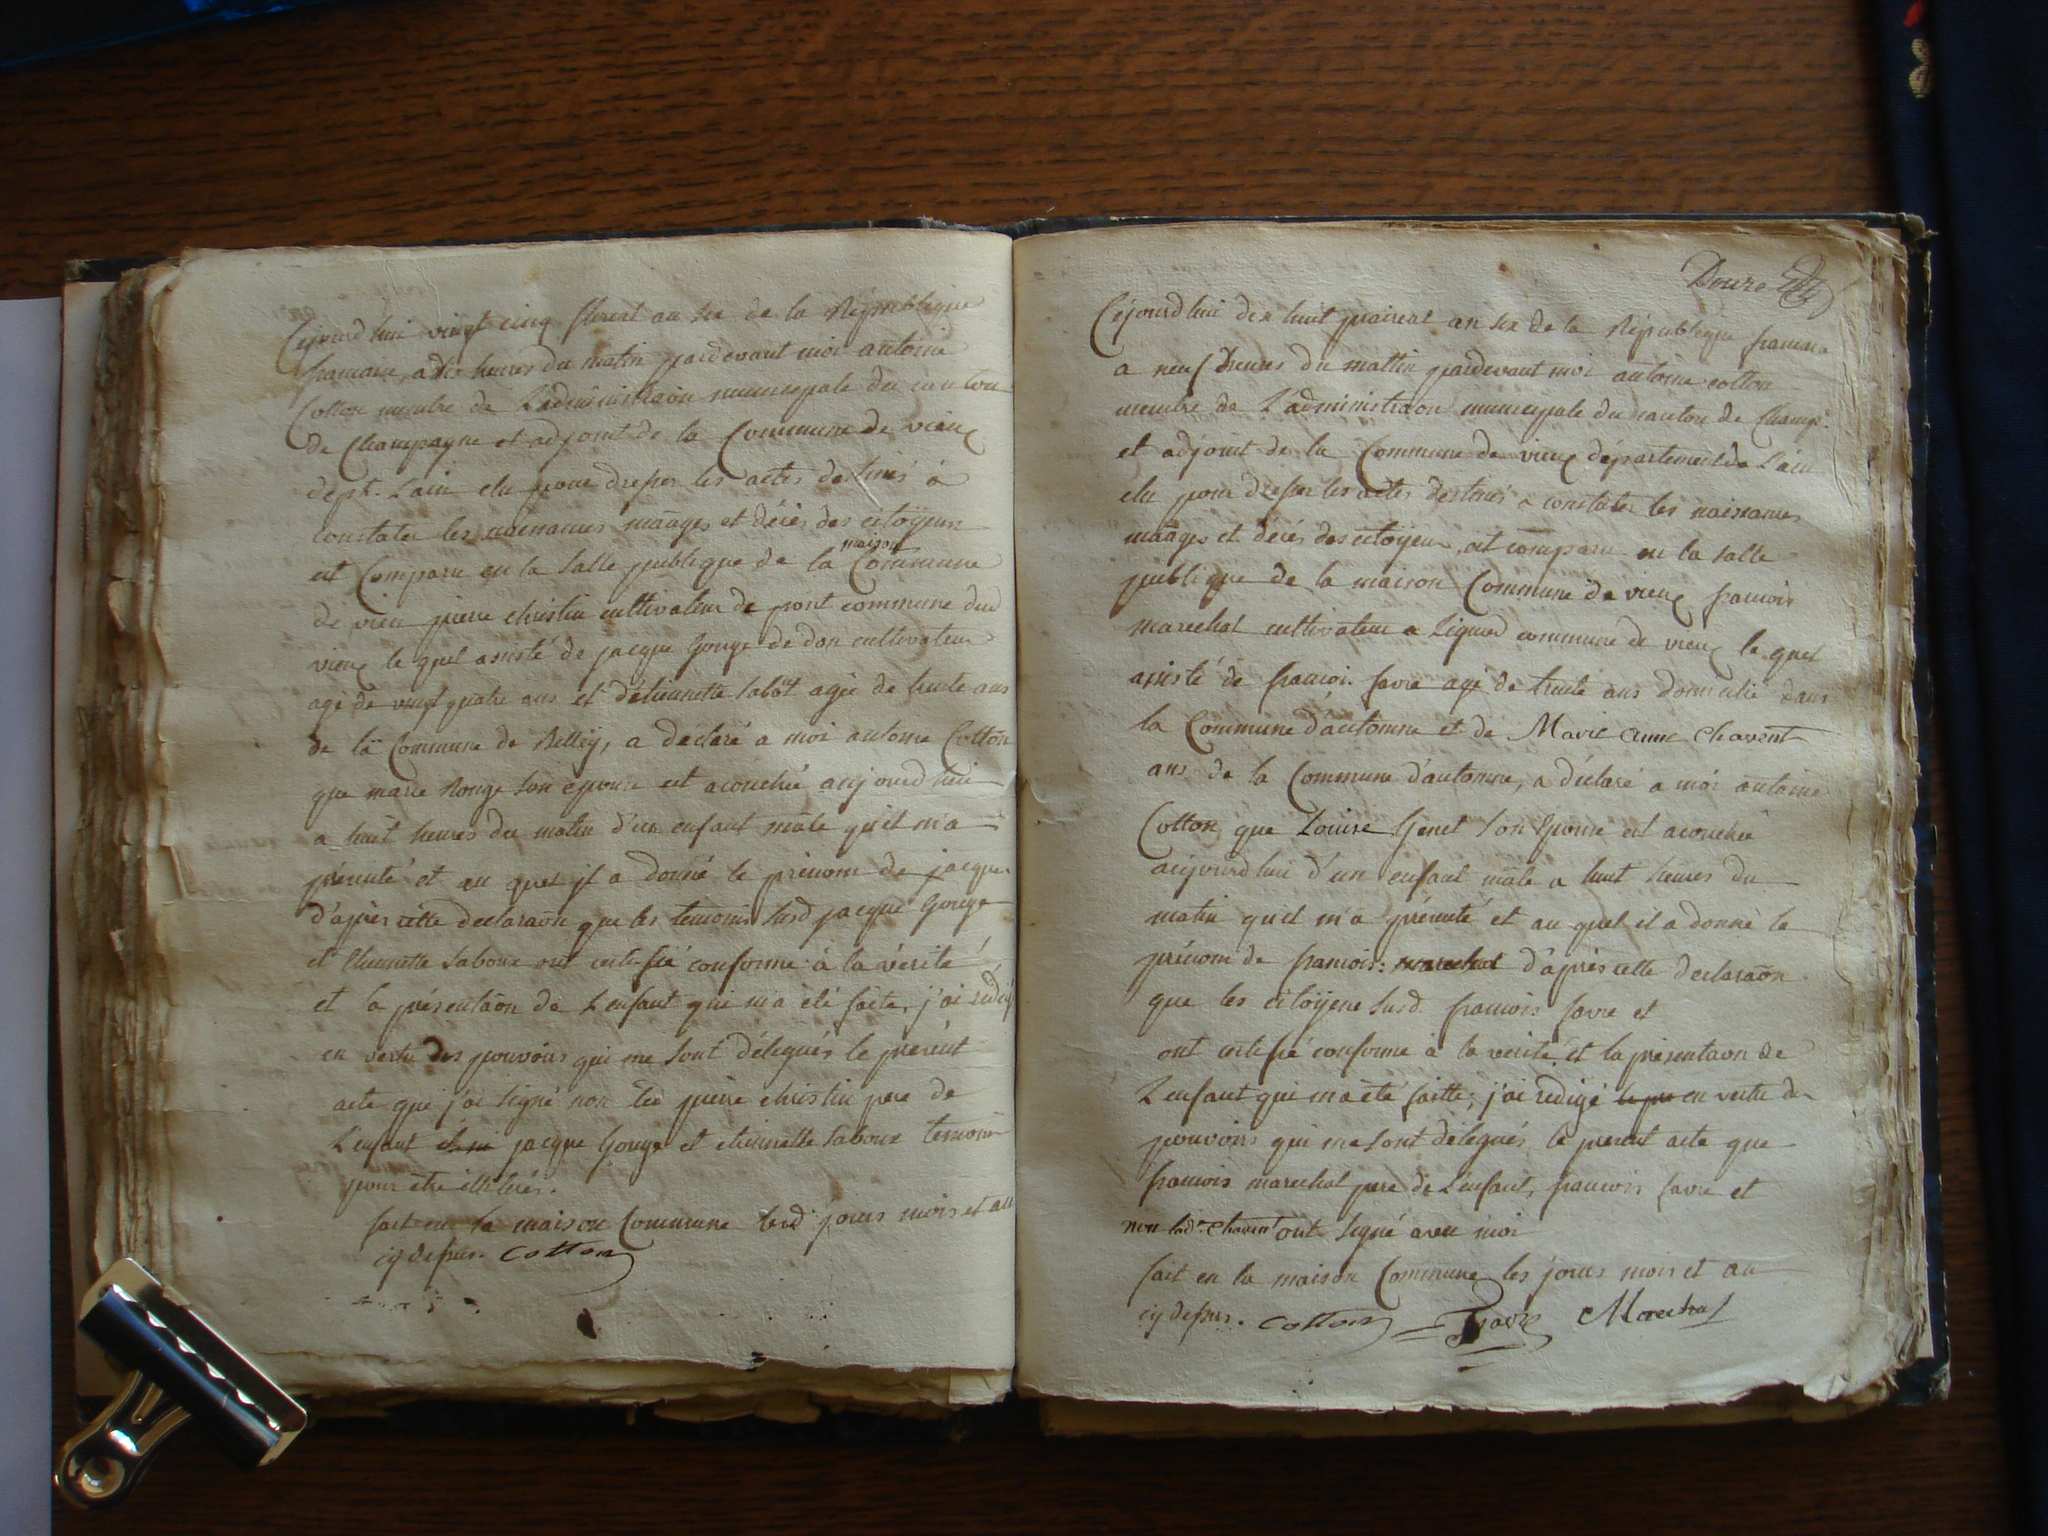 Cejourd'hui vingt cinq floreal an six de la Republique
francaise, a dix heures du matin pardevant moi antoine
Cotton membre de L'administraon municipale du canton
de Champagne et adjoint de la Commune de vieux
dépt. Lain elu pour dresser les actes destinés à
constater les naissances mãages et décès des citoÿens
est Comparu en la salle publique de la maison Commune
de vieu pierre christin cultivateur de pont commune dud
vieux le quel assisté de jacque Gouge de don cultivateur
agé de vingt quatre ans et d'étiennette sabout agée de trente ans
de la Commune de Belleÿ, a déclaré a moi antoine Cotton
que marie Rouge son epouse est acouchée aujourd'hui
a huit heures du matin d'un enfant mâle qu'il m'a
présenté et au quel il a donné le prénom de jacque
d'après cette declaraon que les temoins susd jacque Gouge
et Etiennette saboux ont certifié conforme à la vérité
et la présentaõn de L'enfant qui m'a été faite, j'ai rédigé
en vertu des pouvoirs qui me sont délegués le présent
acte que j'ai signé non led pierre christin pere de
L'enfant jacque Gouge et etiennette saboux temoin
pour être illiterés.
fait en la maison Commune lesd jours mois et an
cy dessus. Cotton
Douze
Cejourd'hui dix huit prairial an six de la Republique francaise
a neuf heures du mattin pardevant moi antoine cotton
membre de L'administraon municipale du canton de Champe.
et adjoint de la Commune de vieux département de L'ain
elu pour dresser les actes destinés a constater les naissances
mãages et décès des citoyens, est comparu en la salle
publique de la maison Commune de vieux francois
marechal cultivateur a Lignod commune de vieux le quel
assisté de francois favre agé de trente ans domicilié dans
la Commune d'autonne et de Marie Anne Chavent
ans de la Commune d'autonne, a déclaré a moi antoine
Cotton que Louise Genet son Epouse est acouchée
aujourd'hui d'un enfant mâle a huit heures du
matin qu'il m'a présenté et au quel il a donné le
prénom de francois: marechal d'après cette declaraõn
que les citoÿens susd. francois favre et
ont certifié conforme à la vérité et la présentaon de
L'enfant qui m'a été faitte; j'ai redigé le pre en vertu des
pouvoirs qui me sont délegués le present acte que
francois marechal pere de L'enfant, francois favre et
non lad. chavent ont signé avec moi
fait en la maison Commune les jours mois et an
cy dessus. Cotton Favre Marechal